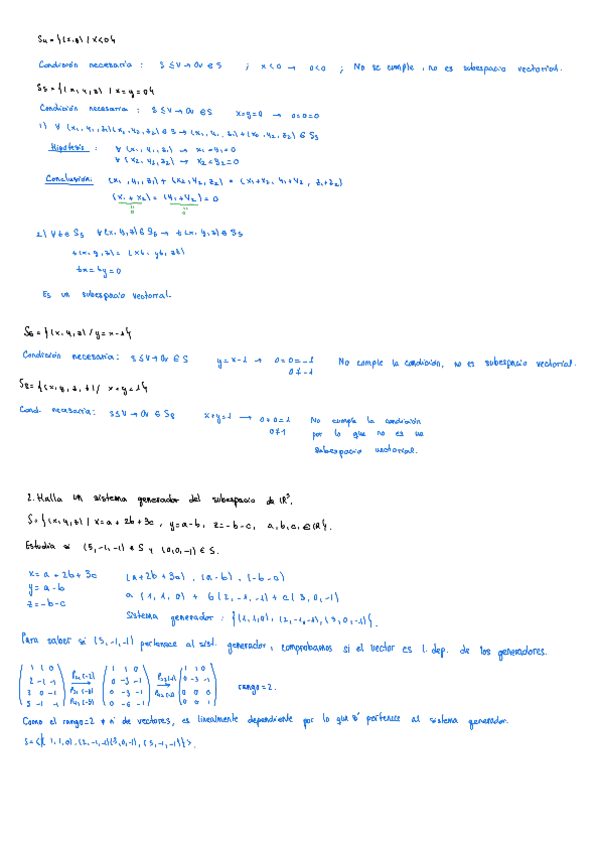 S₄ = {(x,y) / x<0}
Condición necesaria : S ≤ V → 0v ∈ S ; x<0 → 0<0 ; No se cumple, no es subespacio vectorial.
S₅ = {(x,y,z) / x=y=0}
Condición necesaria : S ≤ V → 0v ∈ S x=y=0 → 0=0=0
1) ∀ (x₁,y₁,z₁)(x₂,y₂,z₂) ∈ S → (x₁,y₁,z₁)+(x₂,y₂,z₂) ∈ S₅
Hipótesis : ∀ (x₁,y₁,z₁) → x₁=y₁=0
∀ (x₂,y₂,z₂) → x₂=y₂=0
Conclusión: (x₁,y₁,z₁)+(x₂,y₂,z₂) = (x₁+x₂, y₁+y₂, z₁+z₂)
(x₁+x₂) = (y₁+y₂) = 0
0 0
2) ∀ t ∈ S₅ ∀ (x,y,z) ∈ S₅ → t(x,y,z) ∈ S₅
t(x,y,z) = (xt, yt, zt)
tx = ty = 0
Es un subespacio vectorial.
S₆ = {(x,y,z) / y=x-1}
Condición necesaria: S ≤ V → 0v ∈ S y=x-1 → 0=0-1 No cumple la condición, no es subespacio vectorial.
0≠-1
S₈ = {(x,y,z,t) / x+y=1}
Cond. necesaria: S ≤ V → 0v ∈ S₈ x+y=1 → 0+0=1 No cumple la condición
0≠1 por lo que no es un
subespacio vectorial.
2. Halla un sistema generador del subespacio de ℝ³,
S = {(x,y,z) / x=a+2b+3c, y=a-b, z=-b-c, a,b,c ∈ ℝ}.
Estudia si (5,-1,-1) ∈ S y (0,0,-1) ∈ S.
x = a + 2b + 3c (a+2b+3a), (a-b), (-b-c)
y = a-b a(1,1,0) + b(2,-1,-1) + c(3,0,-1)
z = -b-c Sistema generador : {(1,1,0), (2,-1,-1), (3,0,-1)}.
Para saber si (5,-1,-1) pertenece al sist. generador, comprobamos si el vector es l. dep. de los generadores.
1 1 0 1 1 0 1 1 0
2 -1 -1 0 -3 -1 0 -3 -1 rango=2.
3 0 -1 0 -3 -1 0 0 0
5 -1 -1 0 -6 -1 0 0 1
Como el rango=2 ≠ nº de vectores, es linealmente dependiente por lo que sí pertenece al sistema generador.
S=<{(1,1,0),(2,-1,-1)(3,0,-1),(5,-1,-1)}>.